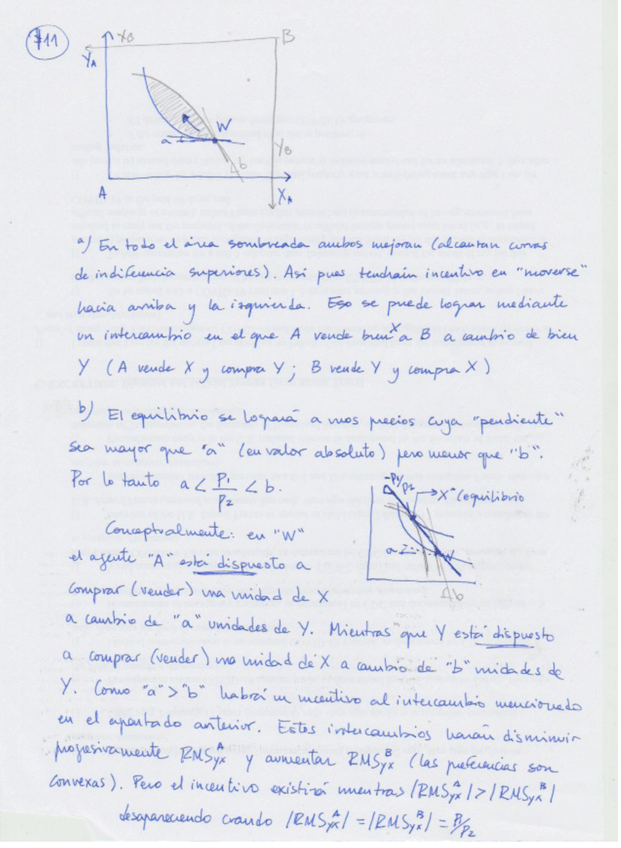 #11
X_B
B
Y_A
W
a
b
Y_B
A
X_A
a) En todo el área sombreada ambos mejoran (alcanzan curvas
de indiferencia superiores). Así pues tendrían incentivo en "moverse"
hacia arriba y la izquierda. Eso se puede lograr mediante
un intercambio en el que A vende bien X a B a cambio de bien
Y (A vende X y compra Y; B vende Y y compra X)
b) El equilibrio se logrará a unos precios cuya "pendiente"
sea mayor que "a" (en valor absoluto) pero menor que "b".
Por lo tanto a < P1/P2 < b.
-P1/P2
X* (equilibrio
a
W
b
Conceptualmente: en "W"
el agente "A" está dispuesto a
comprar (vender) una unidad de X
a cambio de "a" unidades de Y. Mientras que Y está dispuesto
a comprar (vender) una unidad de X a cambio de "b" unidades de
Y. Como "a" > "b" habrá un incentivo al intercambio mencionado
en el apartado anterior. Estos intercambios harán disminuir
progresivamente RMS^A_yx y aumentar RMS^B_yx (las preferencias son
convexas). Pero el incentivo existirá mientras |RMS^A_yx| > |RMS^B_yx|
desapareciendo cuando |RMS^A_yx| = |RMS^B_yx| = P1/P2